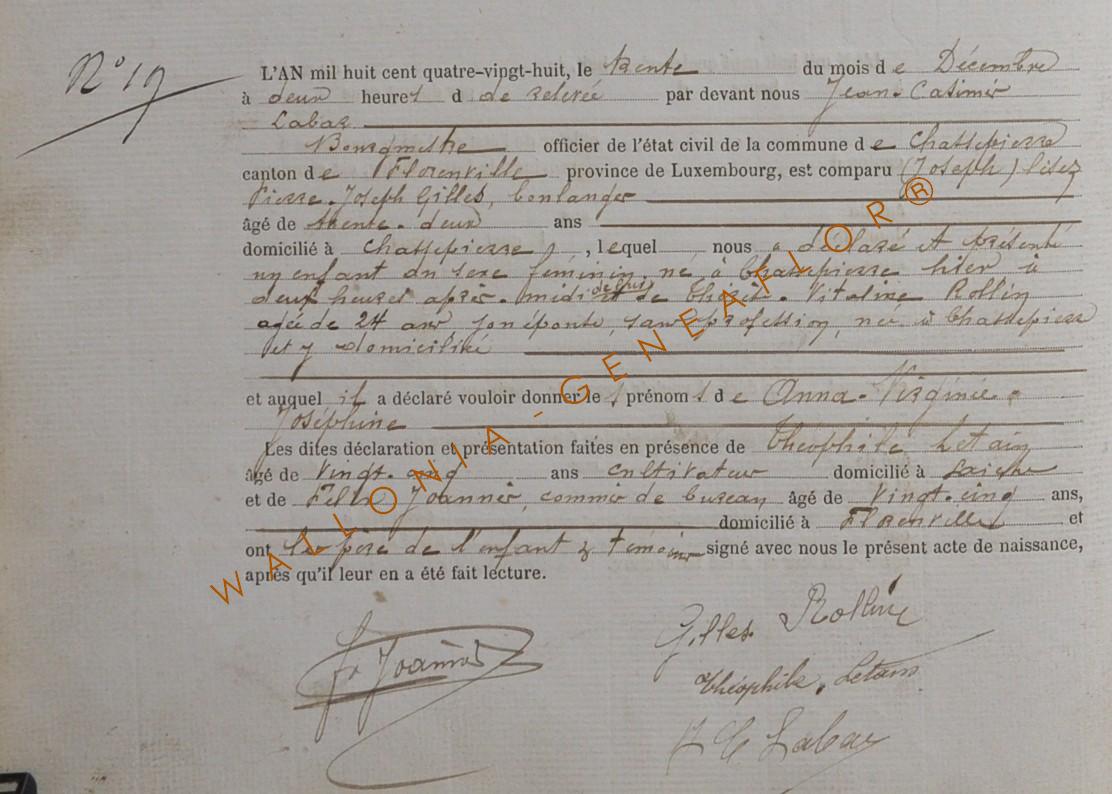 N° 19
L'AN mil huit cent quatre-vingt-huit, le trente du mois de Décembre
à deux heures d de relevée par devant nous Jean-Casimir
Labar
Bourgmestre officier de l'état civil de la commune de Chassepierre
canton de Florenville province de Luxembourg, est comparu (Joseph) lisez
Pierre-Joseph Gilles, boulanger
âgé de trente-deux ans
domicilié à Chassepierre, lequel nous a déclaré et présenté
un enfant du sexe féminin, né à Chassepierre hier à
heures après-midi de lui et de Vitaline Rollin
agée de 24 ans, son épouse, sans profession, née à Chassepierre
et y domiciliée
et auquel il a déclaré vouloir donner les prénoms de Anna-Virginie-
Joséphine
Les dites déclaration et présentation faites en présence de Théophile Letain
âgé de vingt-cinq ans cultivateur domicilié à Laiche
et de Felix Joannès, commis de bureau, âgé de vingt-cinq ans,
domicilié à Florenville et
ont les père de l'enfant & temoins signé avec nous le présent acte de naissance,
après qu'il leur en a été fait lecture.
Gilles Rollin
F. Joannès
Théophile Letain
J C Labar
WALLONIA - GENEAFLOR®